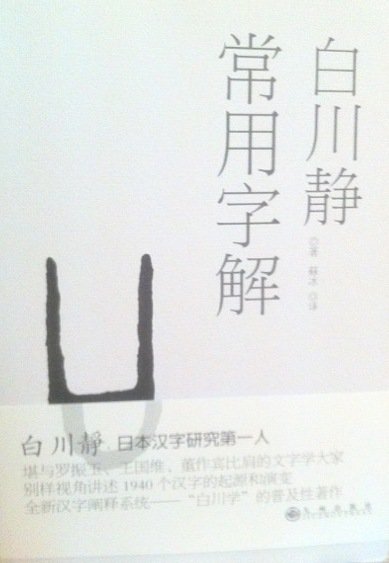 白川静
常用字解
◎著 蘇冰◎译
白川静,日本汉字研究第一人
堪与罗振玉、王国维、董作宾比肩的文字学大家
别样视角讲述1940个汉字的起源和演变
全新汉字阐释系统——“白川学”的普及性著作